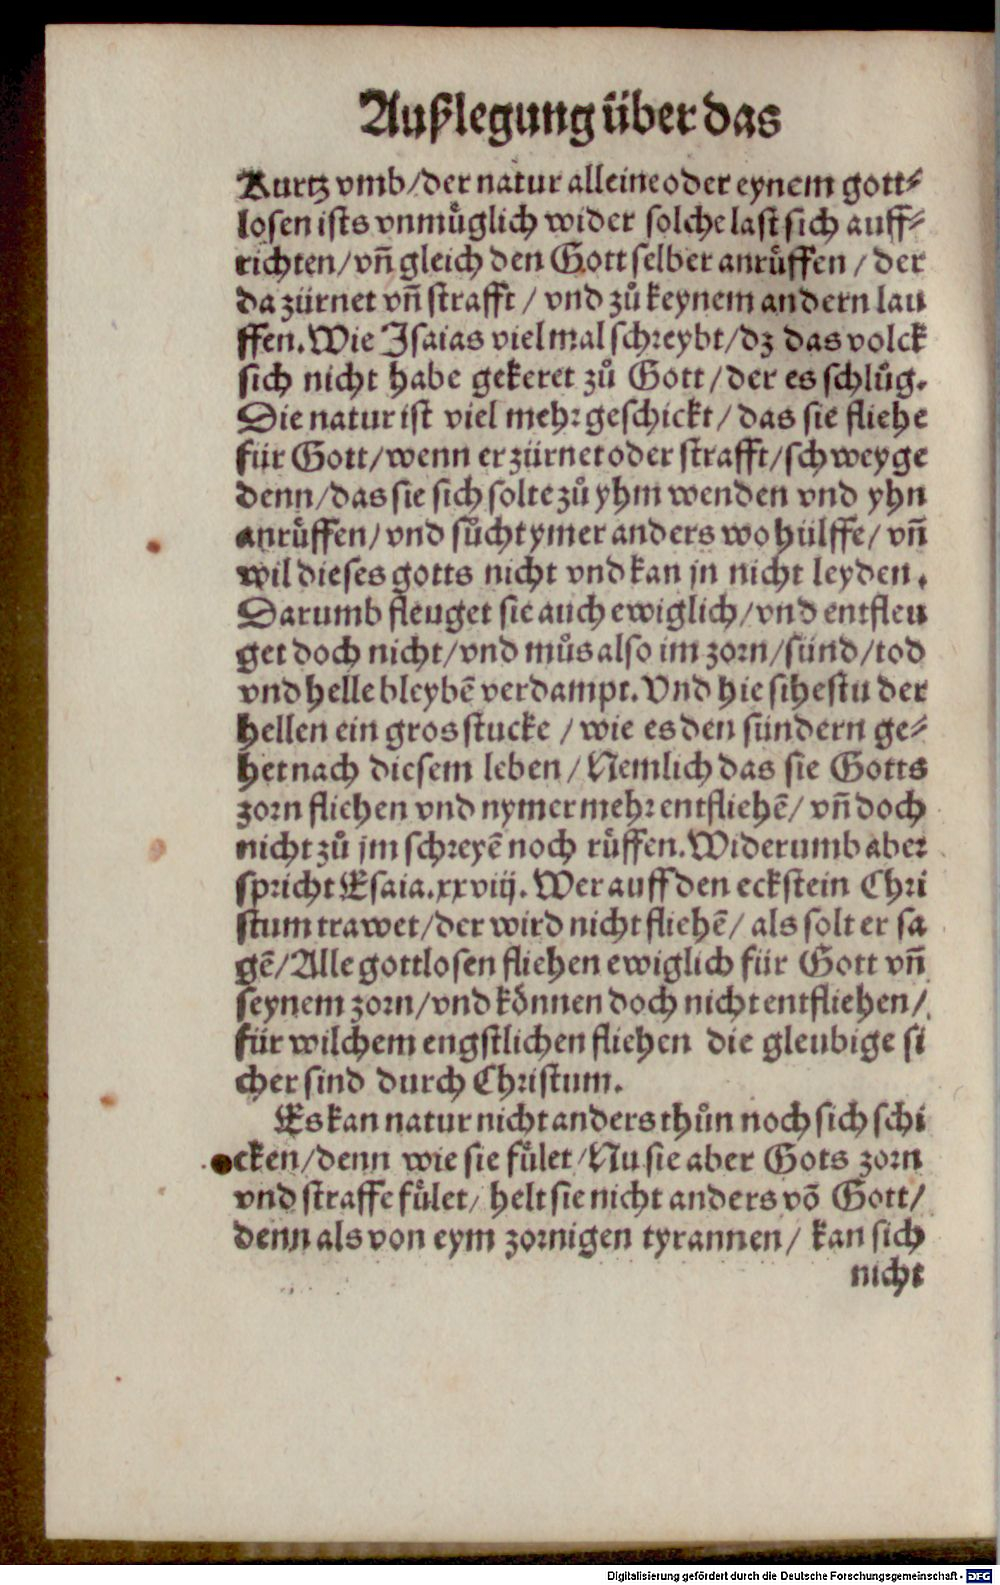 Außlegung über das
Kurtz vmb/der natur alleine oder eynem gott⸗
losen ists vnmuͤglich wider solche last sich auff⸗
richten/vñ gleich den Gott selber anruͤffen/der
da zürnet vñ strafft/vnd zuͦ keynem andern lau
ffen. Wie Isaias vielmal schreybt/dz das volck
sich nicht habe gekeret zuͦ Gott/der es schluͦg.
Die natur ist viel mehr geschickt/das sie fliehe
für Gott/wenn er zürnet oder strafft/schweyge
denn/das sie sich solte zuͦ yhm wenden vnd yhn
anruͤffen/vnd suͦcht ymer anders wo hülffe/vñ
wil dieses gotts nicht vnd kan jn nicht leyden.
Darumb fleuget sie auch ewiglich/vnd entfleu
get doch nicht/vnd muͦs also im zorn/sünd/tod
vnd helle bleybẽ verdampt. Vnd hie sihestu der
hellen ein gros stucke/wie es den sündern ge⸗
het nach diesem leben/Nemlich das sie Gotts
zorn fliehen vnd nymer mehr entfliehẽ/vñ doch
nicht zuͦ jm schreyẽ noch ruͤffen. Widerumb aber
spricht Esaia.xxviij. Wer auff den eckstein Chri
stum trawet/der wird nicht fliehẽ/als solt er sa
gẽ/Alle gottlosen fliehen ewiglich für Gott vñ
seynem zorn/vnd koͤnnen doch nicht entfliehen/
für wilchem engstlichen fliehen die gleubige si
cher sind durch Christum.
Es kan natur nicht anders thuͦn noch sich schi
cken/denn wie sie fuͤlet/Nu sie aber Gots zorn
vnd straffe fuͤlet/helt sie nicht anders võ Gott/
denn als von eym zornigen tyrannen/kan sich
nicht
Digitalisierung gefördert durch die Deutsche Forschungsgemeinschaft - DFG